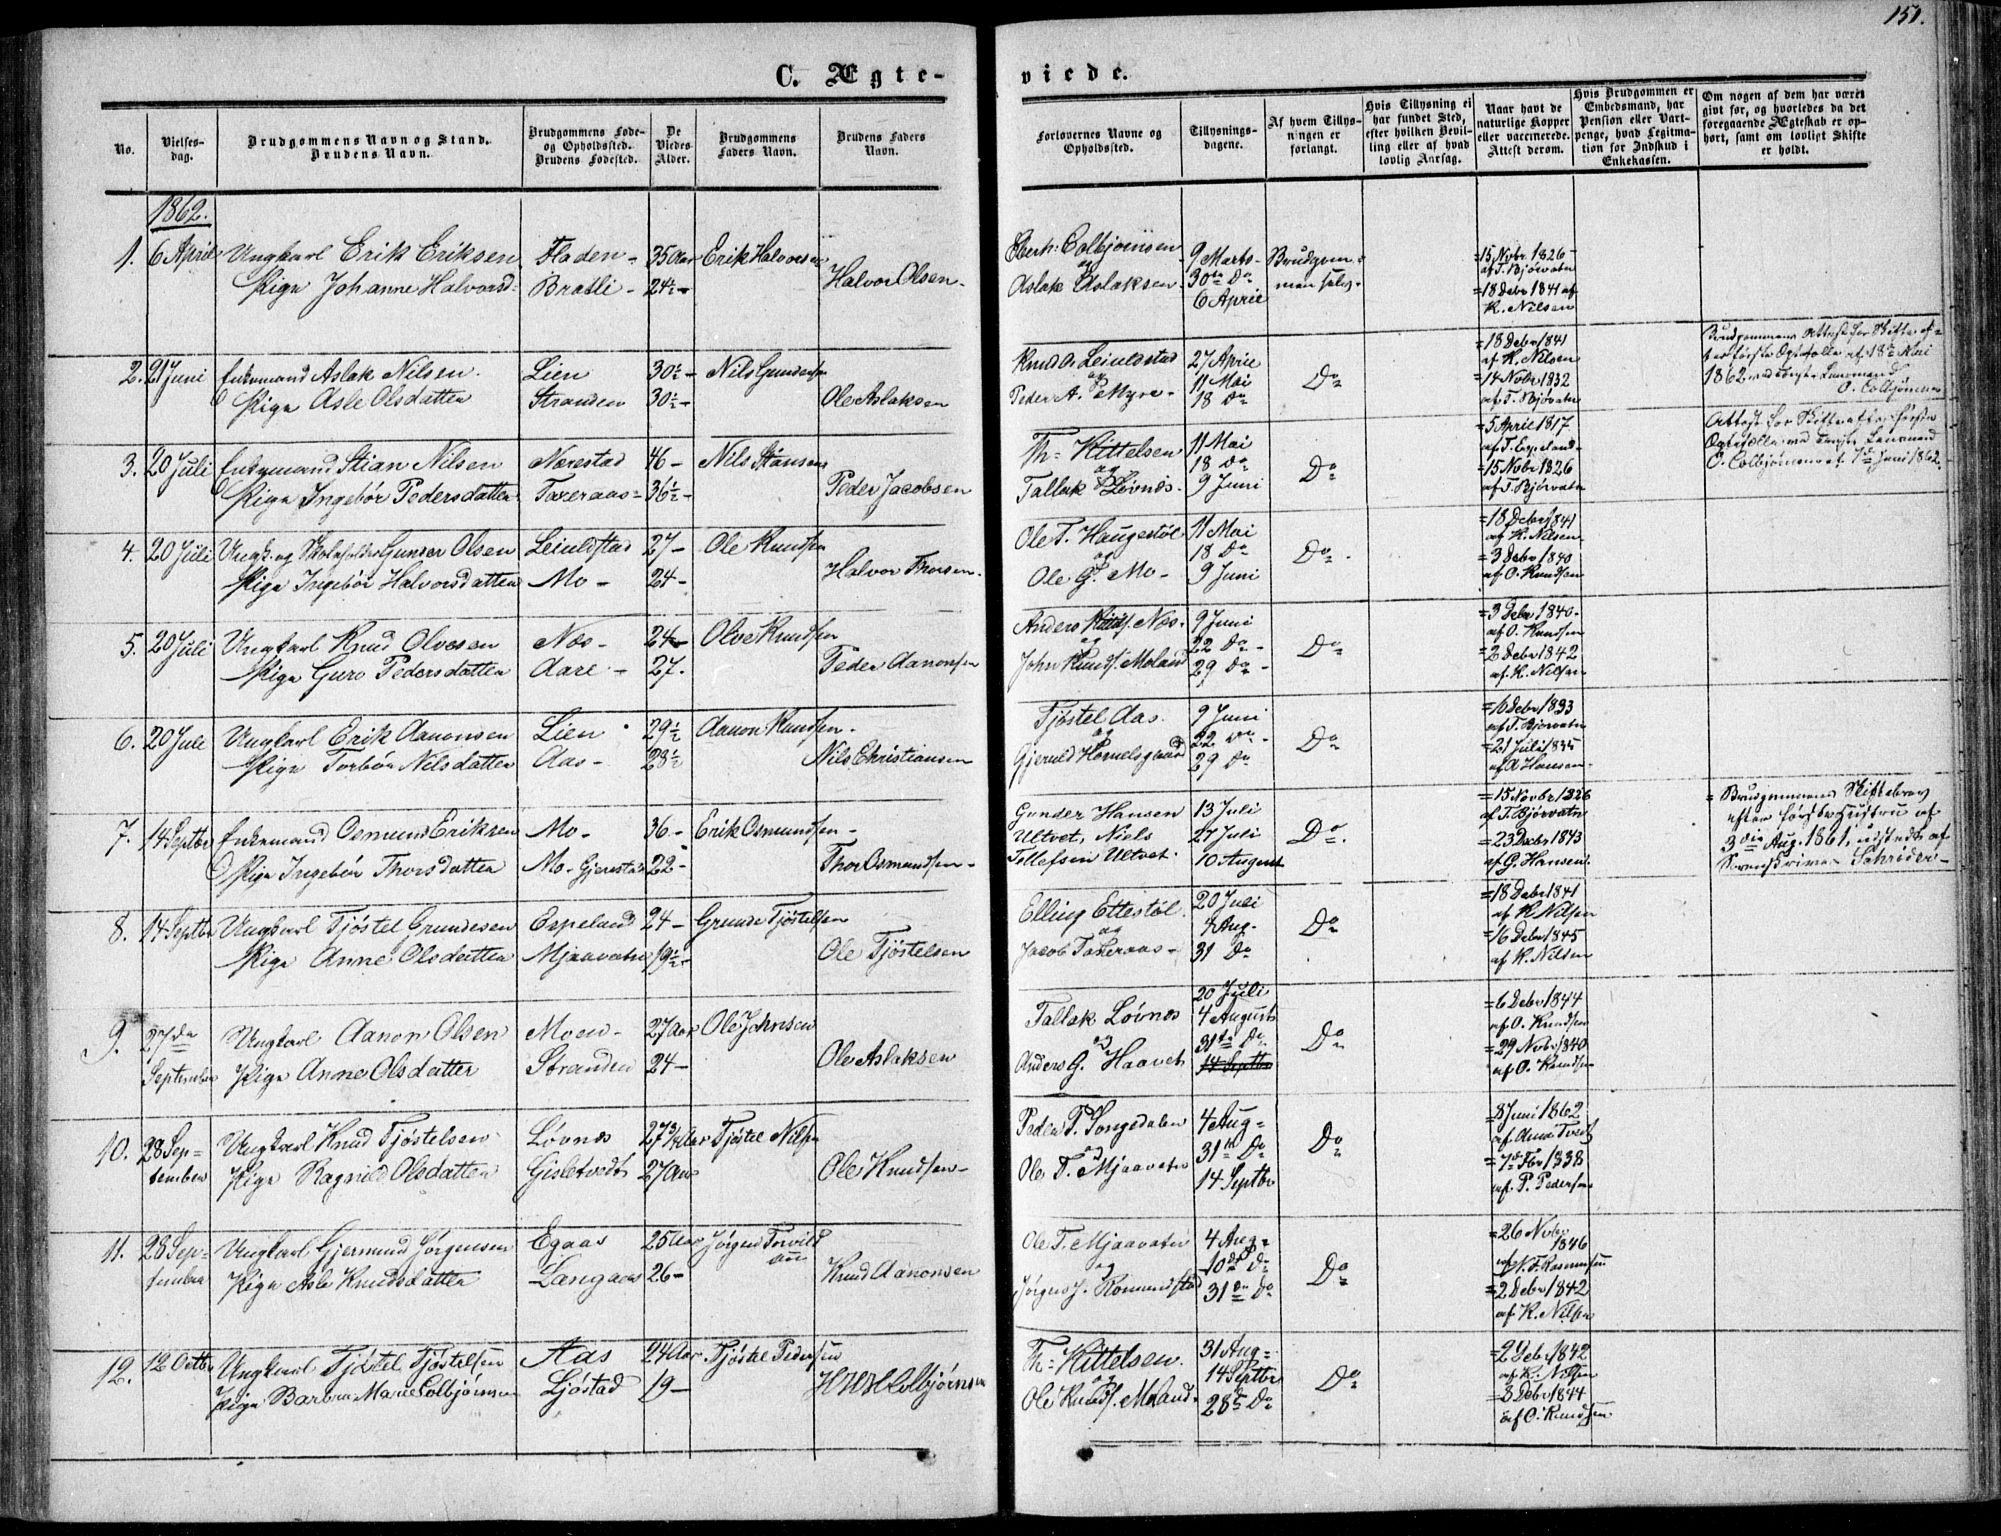 151.
C. Ægte-
viede.
No.
Vielses-
dag.
Brudgommens Navn og Stand.
Brudens Navn.
Brudgommens Føde-
og Opholdssted.
Brudens Fødested.
De
Viedes
Alder.
Brudgommens
Faders Navn.
Brudens Faders
Navn.
Forlovernes Navne og
Opholdssted.
Tillysnings-
dagene.
Af hvem Tillys-
ningen er
forlangt.
Hvis Tillysning ei
har fundet Sted,
efter hvilken Bevil-
ling eller af hvad
lovlig Aarsag.
Naar havt de
naturlige Kopper
eller vaccinerede.
Attest derom.
Hvis Brudgommen er
Embedsmand, har
Pension eller Vart-
penge, hvad Legitima-
tion for Indskud i
Enkekassen.
Om nogen af dem har været
givt før, og hvorledes da det
foregaaende Ægteskab er op-
hørt, samt om lovligt Skifte
er holdt.
1862.
1. 6 April Ungkarl Erik Eriksen Fladen- 35 Aar Erik Halvorsen
Pige Johanne Halvorsd= Bratli- 24½- Halvor Olsen-
Colbjørnsen
og
Aslak Aslaksen
9 Marts-
30te Do
6 April
Brudgom-
men selv-
=15 Novbr 1826-
af T. Bjørvatn
=18 Debr 1841 af
K. Nilsen
2. 21 Juni Enkemand Aslak Nilsen. Lien 30½- Nils Gundersen
Pige Asle Olsdatter Stranden 30½- Ole Aslaksen
Knud O. Leiulstad
og
Peder A. Myre-
27 April
11 Mai
18 Do
Do
=18 Debr 1841
af K. Nilsen
=14 Novbr 1832
af T. Bjørvatn
Brudgommens Attest for Skifte ef-
ter første Ægtefælle af 18de Mai
1862 ved Lensmand
O. Colbjørnsen
3. 20 Juli Enkemand Stian Nilsen Nærestad 46- Nils Stiansen
Pige Ingebør Pedersdatter Taxeraas= 36½- Peder Jacobsen
Th= Kittelsen
og
Tallak Løvnes-
11 Mai
18 Do
9 Juni
Do
=5 April 1817
af T. Espeland-
=15 Nobr 1826
af T. Bjørvatn
Attest for Skifte efter første
Ægtefælle ved Lensmand
O. Colbjørnsen af 7de Juni 1862.
4. 20 Juli Ungk. og Gunder Olsen Leiulstad 27- Ole Knudsen
Pige Ingebør Halvorsdatter Mo- 24- Halvor Thorsen-
Ole T. Haugestøl
og
Ole G. Mo-
11 Mai
18 Do
9 Juni
Do-
=18 Debr 1841
af K. Nilsen
=3 Debr 1840
af O. Knudsen
5. 20 Juli Ungkarl Knud Olvesen Næs- 24- Olve Knudsen
Pige Guro Pedersdatter Aare- 27- Peder Aanonsen
Anders Næs-
og
John Knuds. Moland
9 Juni
22 Do-
29 Do-
Do
=3 Debr 1840-
af O. Knudsen
=2 Debr 1842
af K. Nilsen
6. 20 Juli Ungkarl Erik Aanonsen Lien 29½ Aanon Knudsen-
Pige Torbør Nilsdatter Aas- 28½ Nils Christiansen
Tjøstel Aas-
og
Gjeruld Hommelsgaard
9 Juni
22 Do-
29 Do
Do
=10 Debr 1833
af T. Bjørvatn
=21 Juli 1835
af A Hansen-
7. 14 Septbr Enkemand Osmund Eriksen Mo- 36- Erik Osmundsen-
Pige Ingebør Thorsdatter Mo- Gjerestad 22- Thor Osmundsen-
Gunder Hansen
Ultvet, Niels
Tellefsen Ultvet-
13 Juli
27 Juli
10 August
Do.
=15 Novbr 1826
af T. Bjørvatn
=23 Debr 1843
af G. Hansen
= Brudgommens Skiftebrev
efter første Hustru af
3die Aug. 1861, udstedt af
Schrøder-
8. 14 Septbr Ungkarl Tjøstel Grundesen Espeland 24- Grunde Tjøstelsen
Pige Anne Olsdatter Mjaavatn 19½- Ole Tjøstelsen
Elling Ettestøl
og
Jacob Taxeraas-
20 Juli
4 Aug-
31 Do
Do
=18 Debr 1841
af K. Nilsen
=16 Debr 1845
af K. Nilsen
9. 27de Ungkarl Aanon Olsen Moen- 27 Aar Ole Johnsen
September Pige Anne Olsdatter Stranden 24- Ole Aslaksen
Tallak Løvnes
og
Anders G. Haavet
20 Juli
4 August
31te Do
14 Septbr
Do
=6 Debr 1844
af O. Knudsen
=29 Nobr 1840
af O. Knudsen
10. 28 Sep= Ungkarl Knud Tjøstelsen Løvnes 27¾ Aar Tjøstel Nilsen
tember Pige Ragnild Olsdatter Gisletvedt 27 Aar Ole Knudsen-
Peder P. Songedalen
og
Ole T. Mjaavatn
4 Aug=
31te Do
14 Septbr
Do
=8 Juni 1862
af
= 1838
af P. Pedersen
11. 28 Sep= Ungkarl Gjermund Jørgensen Egaas 25 Aar Jørgen
tember Pige Asle Knudsdatter Langaas 26- Knud Aanonsen
Ole T. Mjaavatn
og
Jørgen J. Romundstad
4 Aug=
10de Do
31te Do
Do
=26 Nobr
1846
af N. F. Rasmussen
=2 Debr 1842
af K. Nilsen
12. 12 Octbr Ungkarl Tjøstel Tjøstelsen Aas 24 Aar Tjøstel Pedersen
Pige Barbra Marie Colbjørnsen Ljøstad 19- Colbjørnsen
Th= Kittelsen
og
Ole Knuds. Moland-
31 Aug=
14 Septbr
28de Do
Do
=2 Debr 1842
af K. Nilsen
=3 Debr 1844
af O. Knudsen